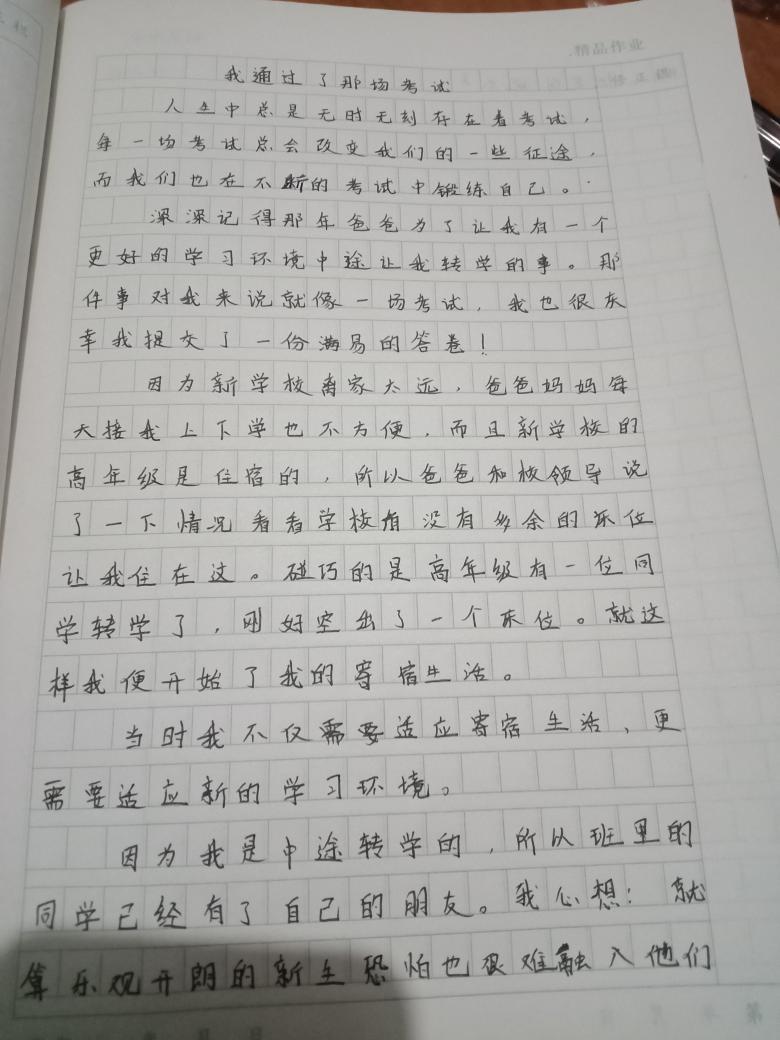 精品作业
我通过了那场考试
人生中总是无时无刻存在着考试，
每一场考试总会改变我们的一些征途，
而我们也在不断的考试中锻练自己。
深深记得那年爸爸为了让我有一个
更好的学习环境中途让我转学的事。那
件事对我来说就像一场考试，我也很庆
幸我提交了一份满易的答卷！
因为新学校离家太远，爸爸妈妈每
天接我上下学也不方便，而且新学校的
高年级是住宿的，所以爸爸和校领导说
了一下情况看看学校有没有多余的床位
让我住在这。碰巧的是高年级有一位同
学转学了，刚好空出了一个床位。就这
样我便开始了我的寄宿生活。
当时我不仅需要适应寄宿生活，更
需要适应新的学习环境。
因为我是中途转学的，所以班里的
同学已经有了自己的朋友。我心想：就
算乐观开朗的新生恐怕也很难融入他们